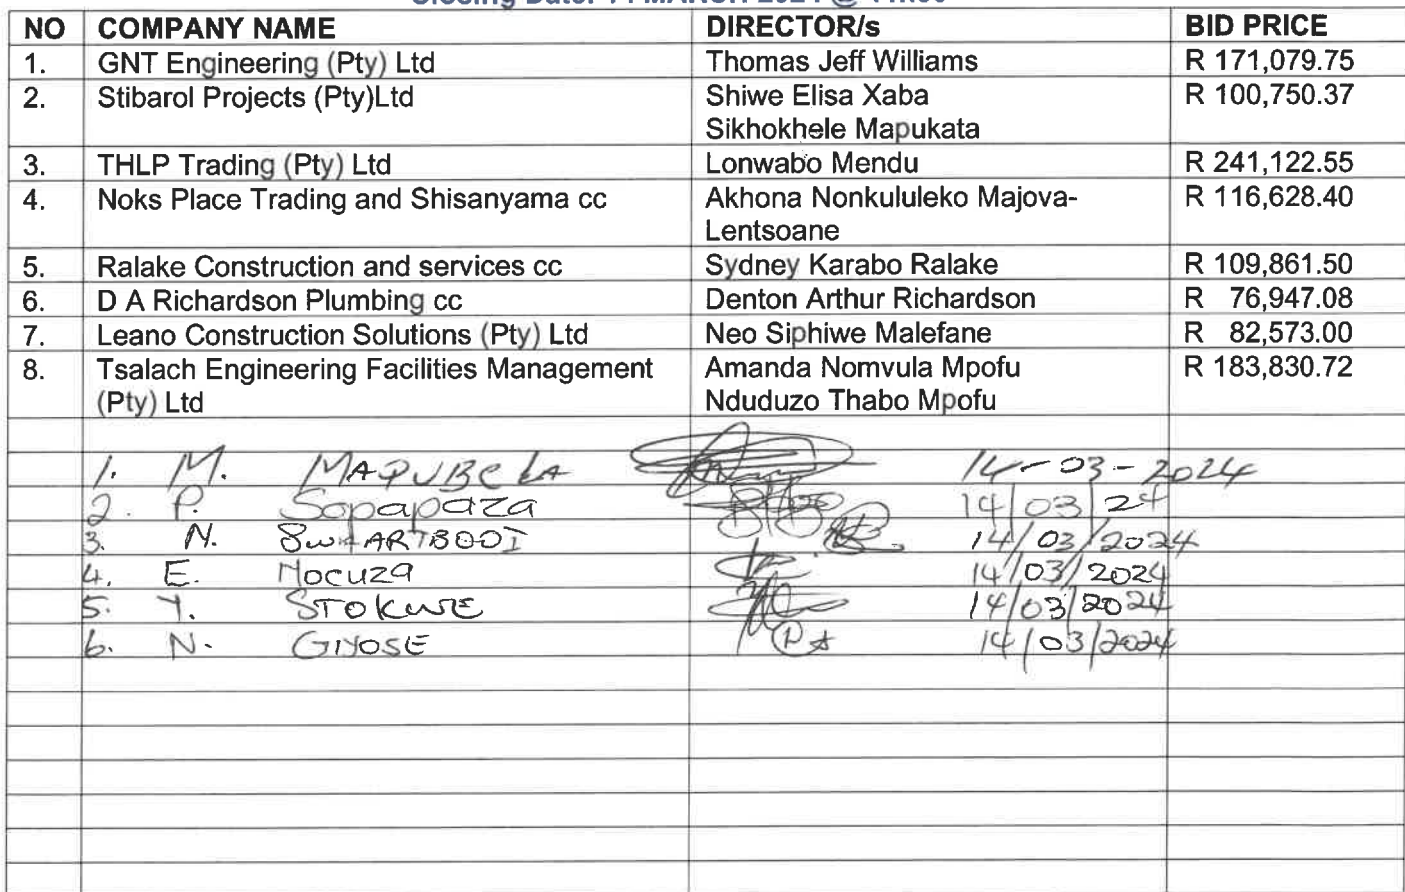 Closing Date: 14 MARCH 2024 @ 11h00
NO COMPANY NAME DIRECTOR/s BID PRICE
1. GNT Engineering (Pty) Ltd Thomas Jeff Williams R 171,079.75
2. Stibarol Projects (Pty)Ltd Shiwe Elisa Xaba R 100,750.37
Sikhokhele Mapukata
3. THLP Trading (Pty) Ltd Lonwabo Mendu R 241,122.55
4. Noks Place Trading and Shisanyama cc Akhona Nonkululeko Majova- R 116,628.40
Lentsoane
5. Ralake Construction and services cc Sydney Karabo Ralake R 109,861.50
6. D A Richardson Plumbing cc Denton Arthur Richardson R 76,947.08
7. Leano Construction Solutions (Pty) Ltd Neo Siphiwe Malefane R 82,573.00
8. Tsalach Engineering Facilities Management Amanda Nomvula Mpofu R 183,830.72
(Pty) Ltd Nduduzo Thabo Mpofu
1. M. MAQUBELA 14-03-2024
2. P. Sopapaza 14/03/24
3. N. SWARTBOOI 14/03/2024
4. E. Nocuza 14/03/2024
5. Y. STOKWE 14/03/2024
6. N. GIYOSE 14/03/2024